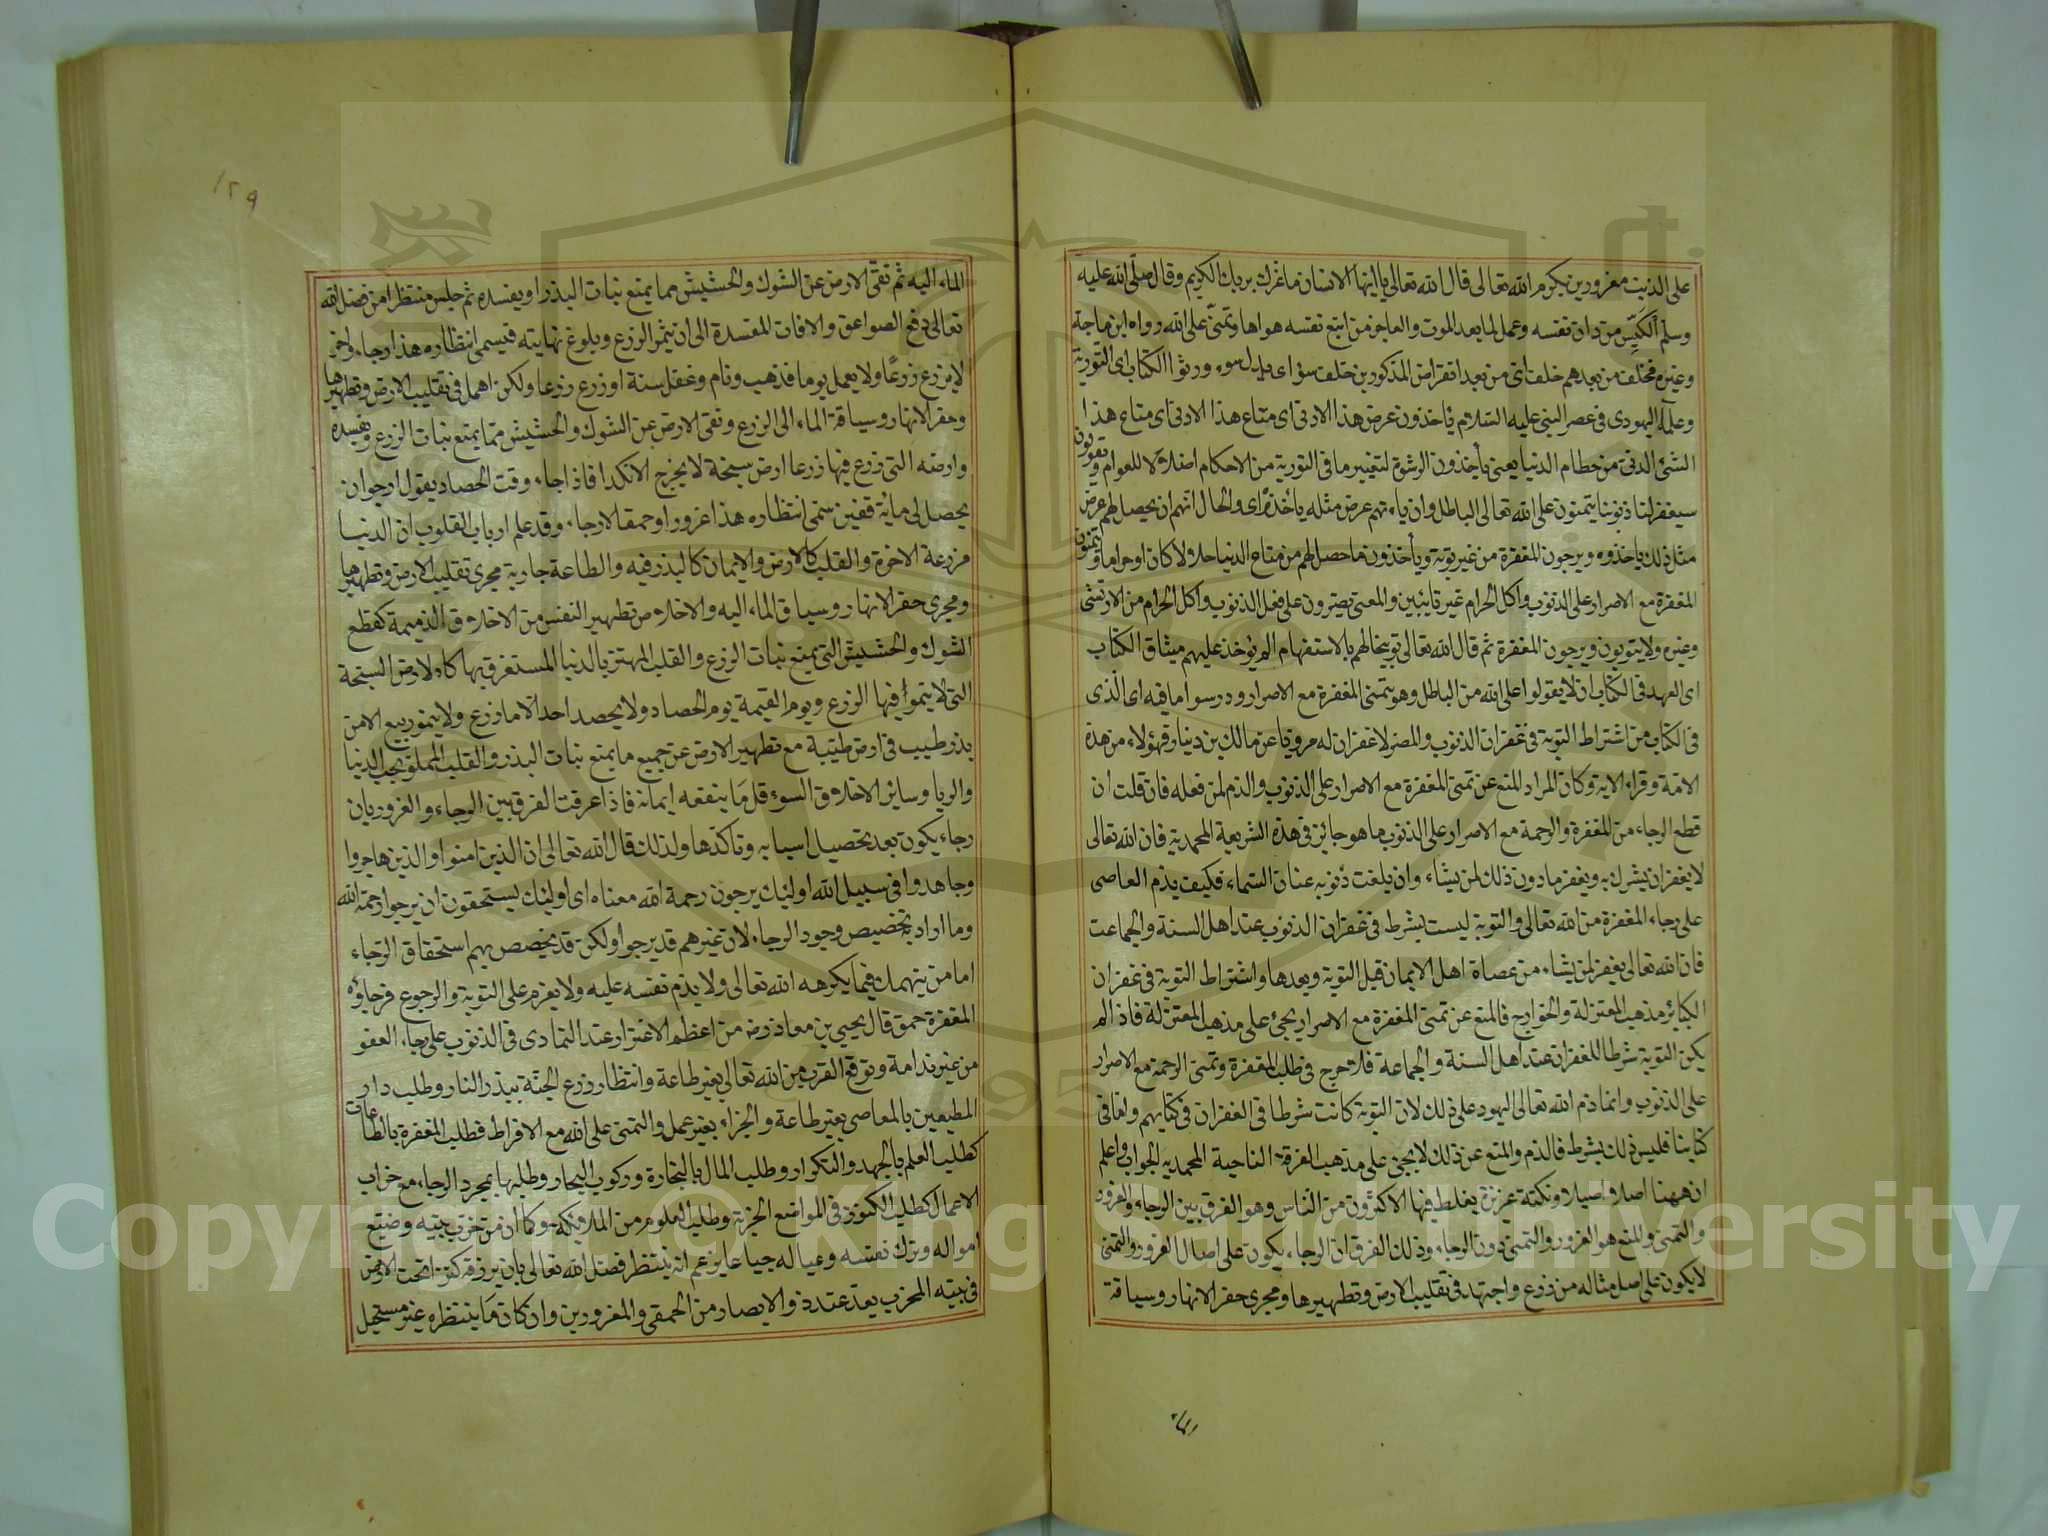 على الذنب مغرورين بكرم الله تعالى قال الله تعالى يا ايها الانسان ما غرك بربك الكريم وقال صلى الله عليه
وسلم الكيس من دان نفسه وعمل لما بعد الموت والعاجز من اتبع نفسه هواها وتمنى على الله رواه ابن ماجة
وغيره فخلف من بعدهم خلف اى من بعد انقراض المذكورين خلف سوء اى بدل سوء ورثوا الكتاب اى التورية
وعلماء اليهود فى عصر النبى عليه السلام يأخذون عرض هذا الادنى اى متاع هذا الادنى اى متاع هذا
الشئ الدنى من حطام الدنيا يعنى يأخذون الرشوة لتغيير ما فى التورية من الاحكام اضلالا للعوام ويقولون
سيغفر لنا ذنوبنا يتمنون على الله تعالى الباطل وان يأتهم عرض مثله يأخذوه اى والحال انهم ان يحصل لهم عرض
مثل ذلك يأخذوه ويرجون المغفرة من غير توبة ويأخذون ما حصل لهم من متاع الدنيا حلالا كان او حراما ويتمنون
المغفرة مع الاصرار على الذنوب واكل الحرام غير تائبين والمعنى يصرون على فعل الذنوب واكل الحرام من الارتشى
وغيره ولا يتوبون ويرجون المغفرة ثم قال الله تعالى توبيخا لهم بالاستفهام الم يؤخذ عليهم ميثاق الكتاب
اى العهد فى الكتاب ان لا يقولوا على الله من الباطل وهو تمنى المغفرة مع الاصرار ودرسوا ما فيه اى الذى
فى الكتاب من اشتراط التوبة فى غفران الذنوب والمصر لا غفران له مرويا عن مالك بن دينار فهؤلاء من هذه
الامة وقراء الاية وكان المراد المنع عن تمنى المغفرة مع الاصرار على الذنوب والذم لمن فعله فان قلت ان
قطع الرجاء من المغفرة والرحمة مع الاصرار على الذنوب ما هو جائز فى هذه الشريعة المحمدية فان الله تعالى
لا يغفر ان يشرك به ويغفر ما دون ذلك لمن يشاء وان بلغت ذنوبه عنان السماء فكيف يذم العاصى
على رجاء المغفرة من الله تعالى والتوبة ليست بشرط فى غفران الذنوب عند اهل السنة والجماعت
فان الله تعالى يغفر لمن يشاء من عصاة اهل الايمان قبل التوبة وبعدها واشتراط التوبة فى غفران
الكبائر مذهب المعتزلة والخوارج فالمنع عن تمنى المغفرة مع الاصرار يجئ على مذهب المعتزلة فاذا لم
يكن التوبة شرطا للغفران عند اهل السنة والجماعة فلا حرج فى طلب المغفرة وتمنى الرحمة مع الاصرار
على الذنوب وانما ذم الله تعالى اليهود على ذلك لان التوبة كانت شرطا فى الغفران فى كتابهم واما فى
كتابنا فليس ذلك بشرط فالذم والمنع عن ذلك لا يجئ على مذهب الفرقة الناجية المحمدية الجواب واعلم
ان ههنا اصلا واصيلا ونكتة عزيزة يغلط فيها الاكثرون من الناس وهو الفرق بين الرجاء والغرور
والتمنى والمنع هو الغرور والتمنى دون الرجاء وذلك الفرق ان الرجاء يكون على اصل الغرور والتمنى
لا يكون على اصل مثاله من زرع واجتهد فى تقليب الارض وتطهيرها ومجرى حفر الانهار وسياقة
الماء
١٢٩
الماء اليه ثم تقى الارض عن الشوك والحشيش مما يمنع نبات البذر او يفسده ثم جلس منتظرا من فضل الله
تعالى دفع الصواعق والافات المفسدة الى ان يثمر الزرع ويبلوغ نهايته فيسمى انتظاره هذا رجاء واخر
لا يزرع زرعا ولا يعمل يوما فذهب ونام وغفل سنة او زرع زرعا ولكن اهمل فى تقليب الارض وتطهيرها
وحفر الانهار وسياقة الماء الى الزرع ونقى الارض عن الشوك والحشيش مما يمنع نبات الزرع ويفسده
وارضه التى زرع فيها زرعا ارض سبخة لا يخرج الا نكدا فاذا جاء وقت الحصاد يقول ارجو ان
يحصل لى مائة قفيز سمى انتظاره هذا غرورا وحمقا لا رجاء وقد علم ارباب القلوب ان الدنيا
مزرعة الاخرة والقلب كالارض والايمان كالبذر فيه والطاعة جارية مجرى تقليب الارض وتطهيرها
ومجرى حفر الانهار وسياق الماء اليه والاخلاص تطهير النفس من الاخلاق الذميمة كقطع
الشوك والحشيش التى يمنع نبات الزرع والقلب المهتز بالدنيا المستغرق بها كالارض السبخة
التى لا ينموا فيها الزرع ويوم القيمة يوم الحصاد ولا يحصد احد الا ما زرع ولا ينمو ربيع الا من
بذر طيب فى ارض طيبة مع تطهير الارض عن جميع ما يمنع نبات البذر والقلب المملو بحب الدنيا
والريا وسائر الاخلاق السوء قل ما ينفعه ايمانه فاذا عرفت الفرق بين الرجاء والغرور بان
رجاء يكون بعد تحصيل اسبابه وتأكدها ولذلك قال الله تعالى ان الذين امنوا والذين هاجروا
وجاهدوا فى سبيل الله اولئك يرجون رحمة الله معناه اى اولئك يستحقون ان يرجوا رحمة الله
وما اراد به تخصيص وجود الرجاء لان غيرهم قد يرجوا ولكن قد يخصص بهم استحقاق الرجاء
اما من ينهمك فيما يكرهه الله تعالى ولا يذم نفسه عليه ولا يعزم على التوبة والرجوع فرجاؤه
المغفرة حمق قال يحيى بن معاذ رض من اعظم الاغترار عند التمادى فى الذنوب على رجاء العفو
من غير ندامة وتوقع القرب من الله تعالى بغير طاعة وانتظار زرع الجنة ببذر النار وطلب دار
المطيعين بالمعاصى بغير طاعة والجزاء بغير عمل والتمنى على الله مع الافراط فطلب المغفرة بالطاعات
كطلب العلم بالجهد والتكرار وطلب المال بالتجارة وركوب البحار وطلبها بمجرد الرجاء مع خراب
الاعمال كطلب الكنوز فى المواضع الخربة وطلب العلوم من الملائكة وكما ان من خرب بيته وضيع
امواله وترك نفسه وعياله جياعا يزعم انه ينتظر فضل الله تعالى بان يرزقه كنزا تحت الارض
فى بيته المخرب يعد عند ذوالابصار من الحمقى والمغرورين وان كان ما ينتظره غير مستحيل
Copyright © King Saud University